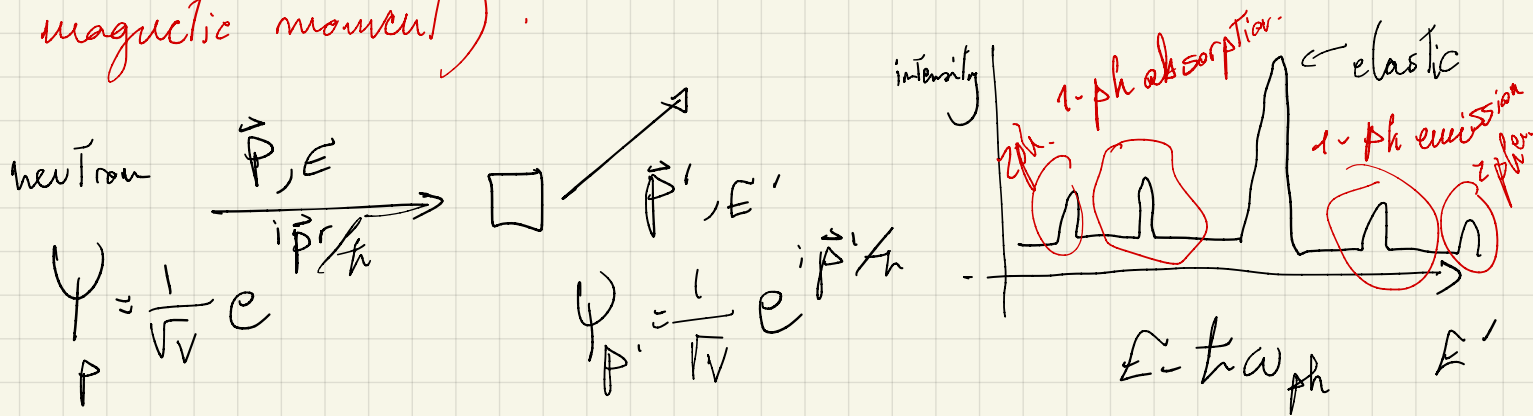 magnetic moment).
neutron
p⃗, E
e^{i p⃗ r/ħ}
ψ_p = 1/√V e
p⃗', E'
ψ_p' = 1/√V e^{i p⃗'/ħ}
intensity
2ph.
1-ph absorption.
← elastic
1-ph emission
2 ph em.
E - ħω_ph
E'